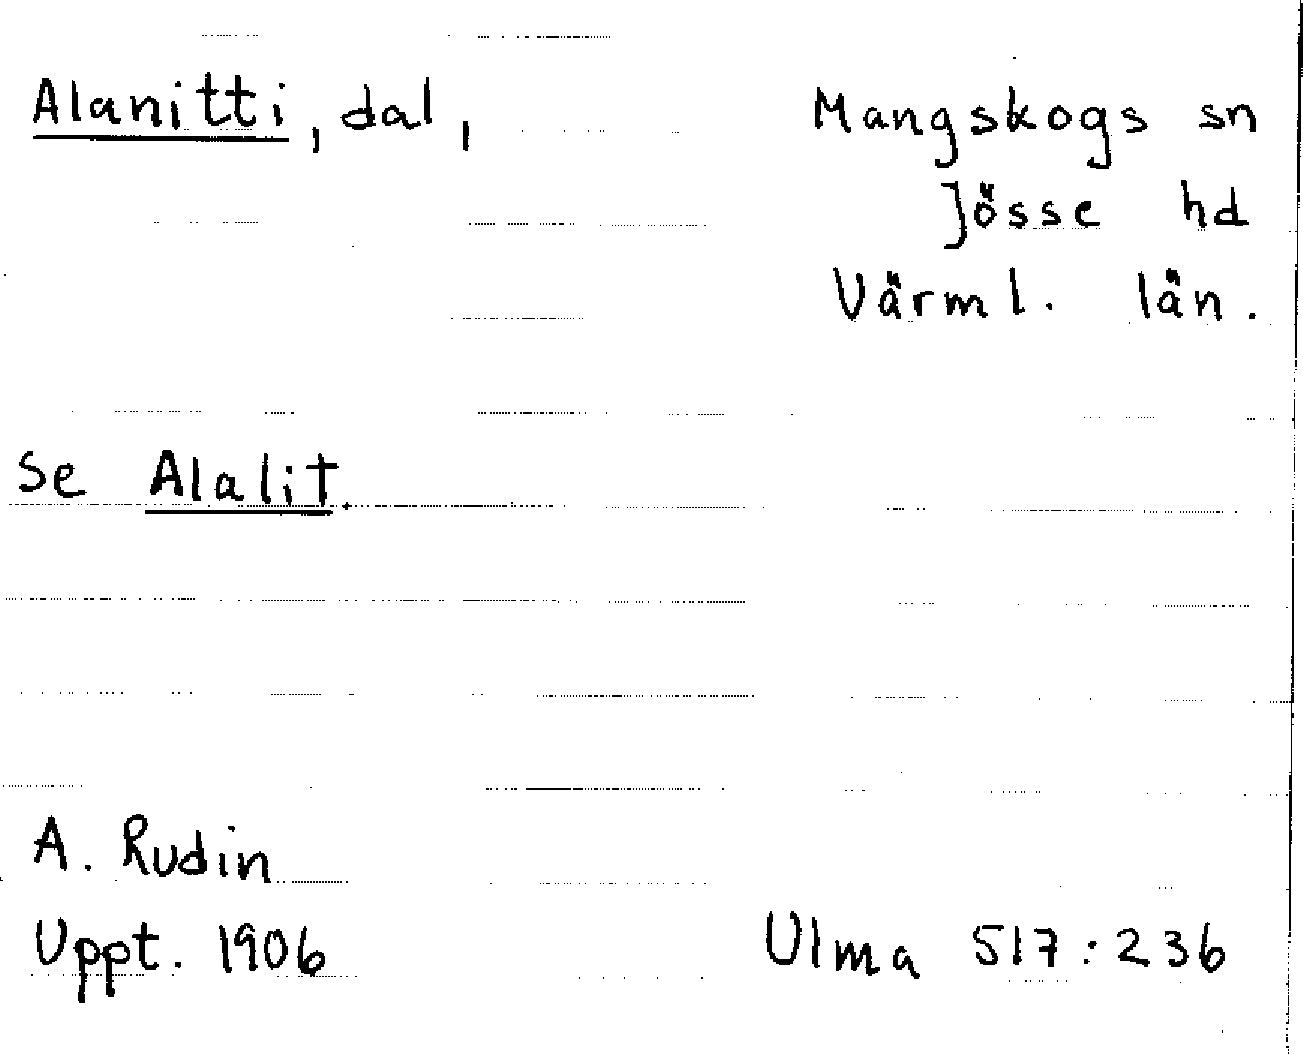 Alanitti, dal, Mangskogs sn
Jösse hd
Värml. län.
Se Alalit.
A. Rudin
Uppt. 1906 Ulma 517:236